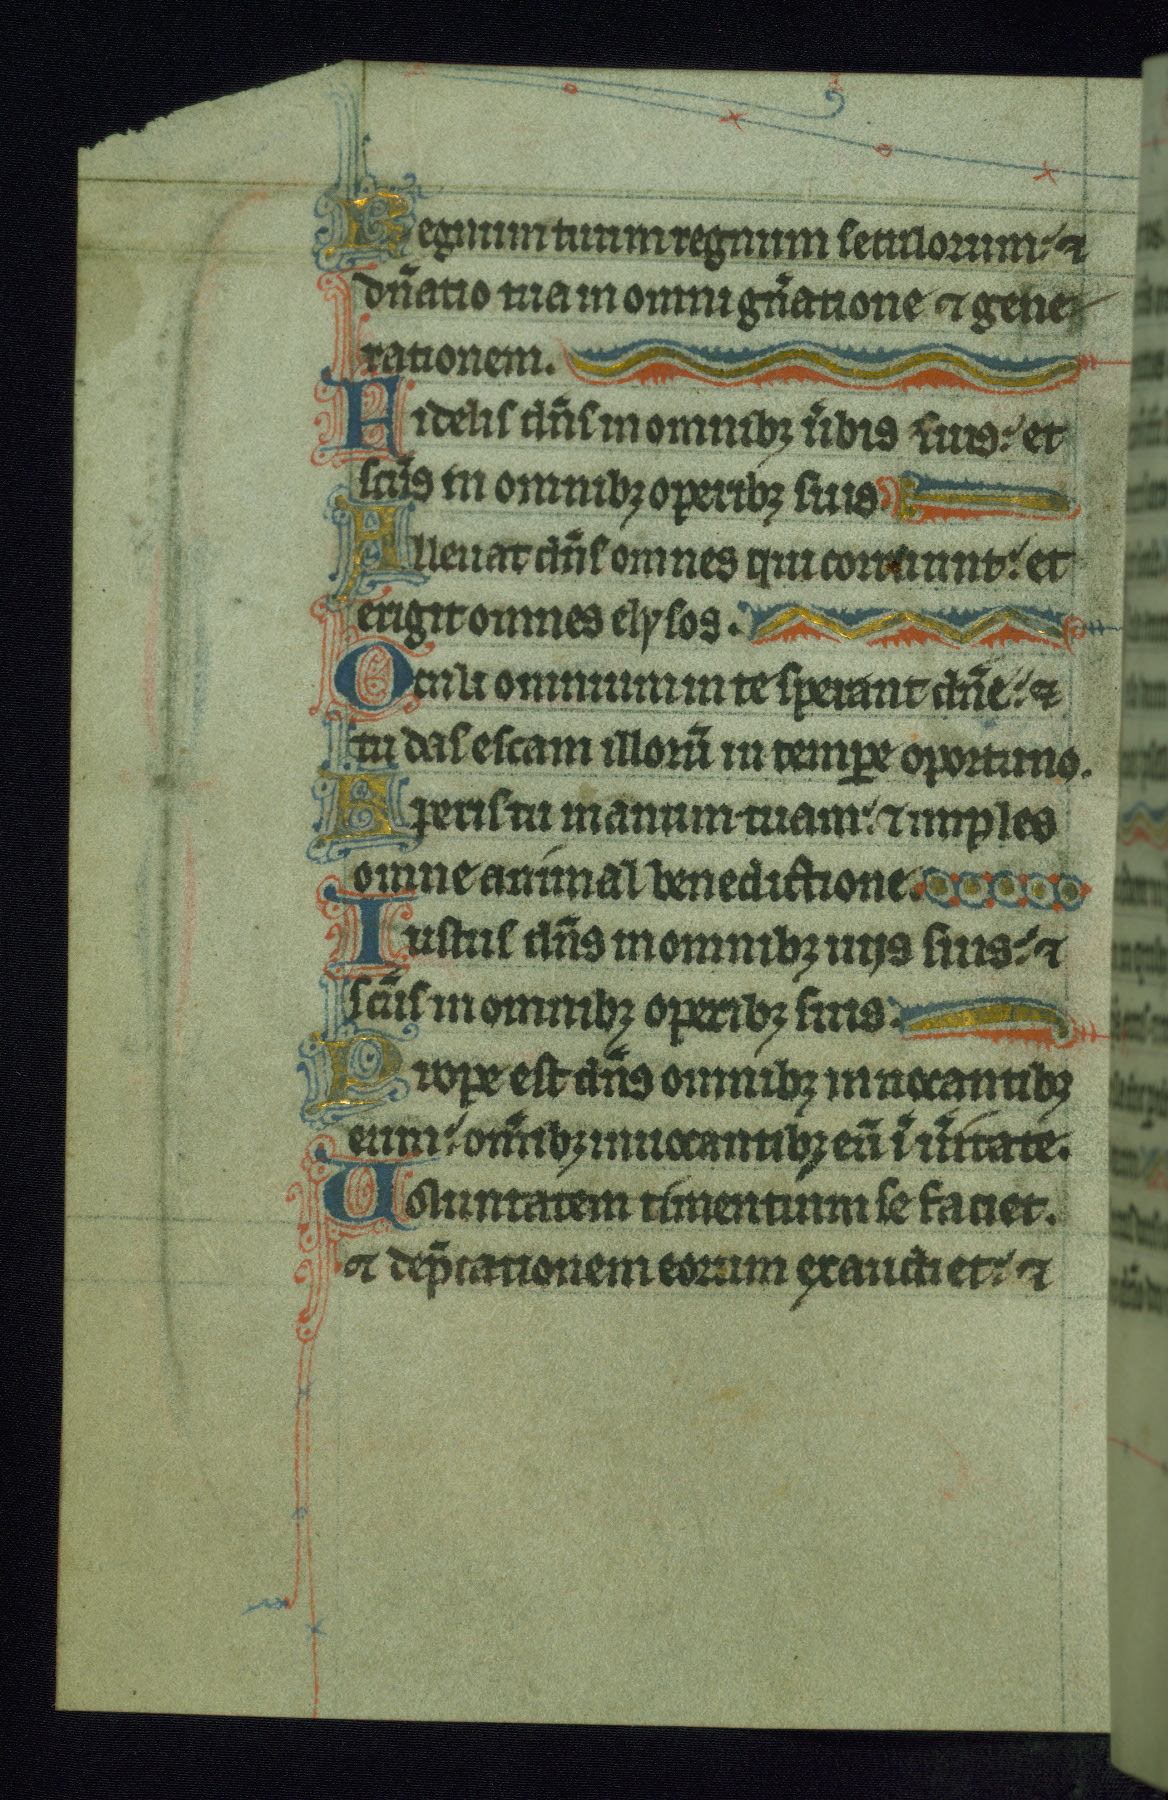 Regnum tuum regnum seculorum: ⁊
dn̄atio tua in omni gn̄atione ⁊ gene
rationem.
Fidelis dn̄s in omnibꝫ v̄bis suis: et
sc̄us in omnibꝫ operibꝫ suis
Alleuat dn̄s omnes qui corruunt: et
erigit omnes elysos.
Oculi omnium in te sperant dn̄e: ⁊
tu das escam illorū in temꝑe oportuno.
Aperis tu manum tuam: ⁊ imples
omne animal benedictione.
Iustus dn̄s in omnibꝫ uijs suis: ⁊
sc̄us in omnibꝫ operibꝫ suis.
Prope est dn̄s omnibꝫ inuocantibꝫ
eum: om̄ibꝫ inuocantibꝫ eū ī ūitate.
Voluntatem timentium se faciet.
⁊ dep̄cationem eorum exaudiet: ⁊